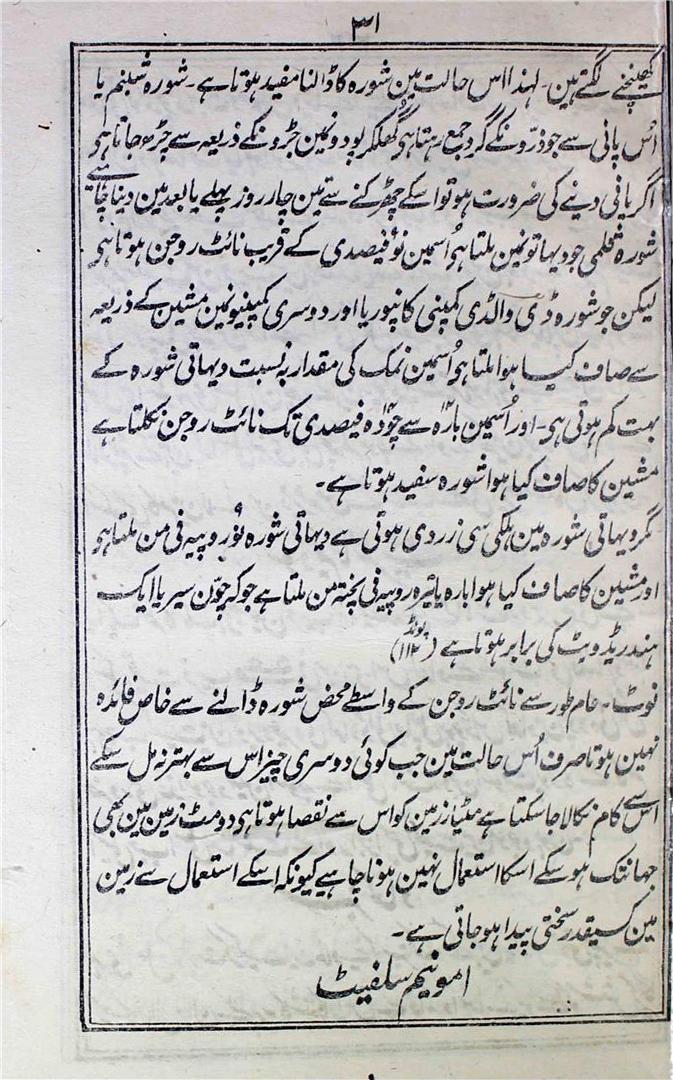 ۳۱
کھینچنے لگتے ہین۔ لہذا اس حالت مین شورہ کا ڈالنا مفید ہوتا ہے۔ شورہ شبنم یا
اُس پانی سے جو ذرّونکے گرد جمع رہتا ہی گھلکر پودونمین جڑونکے ذریعہ سے چڑھ جاتا ہی
اگر پانی دینے کی ضرورت ہو تو اسکے چھڑکنے سے تین چار روز پہلے یا بعد مین دینا چاہیے
شورہ قلمی جو دیہاتونمین ملتا ہی اُسمین نو فیصدی کے قریب نائٹ روجن ہوتا ہی
لیکن جو شورہ ڈی والڈی کمپنی کانپور یا اور دوسری کمپنیونمین مشین کے ذریعہ
سے صاف کیا ہوا ملتا ہی اُسمین نمک کی مقدار بہ نسبت دیہاتی شورہ کے
بہت کم ہوتی ہی۔ اور اُسمین بارہ سے چودہ فیصدی تک نائٹ روجن نکلتا ہے
مشین کا صاف کیا ہوا شورہ سفید ہوتا ہے۔
مگر دیہاتی شورہ مین ہلکی سی زردی ہوتی ہے دیہاتی شورہ نو روپیہ فی من ملتا ہی
اور مشین کا صاف کیا ہوا بارہ یا تیرہ روپیہ فی پختہ من ملتا ہے جو کہ چون سیر یا ایک
ہندریڈ ویٹ کی برابر ہوتا ہے (۱۱۲ پونڈ)
نوٹ۔ عام طور سے نائٹ روجن کے واسطے محض شورہ ڈالنے سے خاص فائدہ
نہین ہوتا صرف اُس حالت مین جب کوئی دوسری چیز اس سے بہتر نہ مل سکے
اس سے کام نکالا جا سکتا ہے مٹیار زمین کو اس سے نقصا ہوتا ہی دومٹ زمین مین بھی
جہانتک ہو سکے اسکا استعمال نہین ہونا چاہیے کیونکہ اسکے استعمال سے زمین
مین کسیقدر سختی پیدا ہو جاتی ہے۔
امونیم سلفیٹ